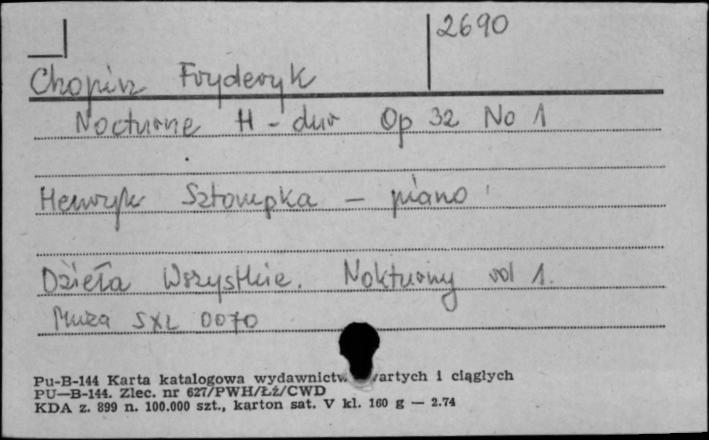 2690
Chopin Fryderyk
Nocturne H-dur Op 32 No 1
Henryk Sztompka - piano
Dzieła Wszystkie. Nokturny vol 1.
Muza SXL 0070
Pu-B-144 Karta katalogowa wydawnictw i ciągłych
PU—B-144. Zlec. nr 627/PWH/Łż/CWD
KDA z. 899 n. 100.000 szt., karton sat. V kl. 160 g — 2.74